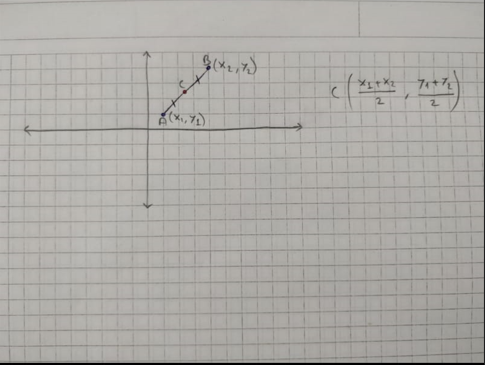 B(x₂, y₂)
C
A(x₁, y₁)
C ( (x₁+x₂)/2 , (y₁+y₂)/2 )